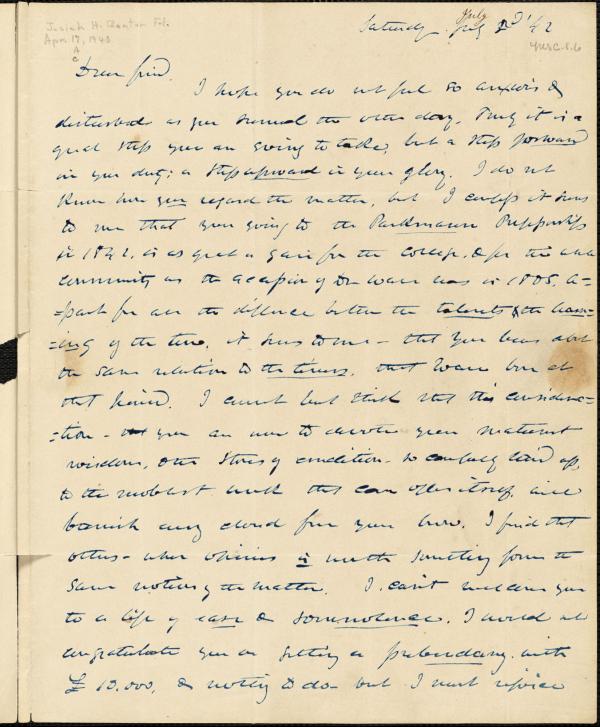 Josiah H. Benton Fd.
Apr. 17, 1943
A
C
July
Saturday July 2d '42
Dear friend.
I hope you do not feel so anxious &
disturbed as you seemed the other day. Truly it is a
great step you are going to take, but a step forward
in your duty; a step upward in your glory. I do not
know how you regard the matter, but I confess it seems
to me that your going to the Parkman Professorship
in 1842, is as great a gain for the College, & for the whole
community as the accession of Dr Ware was in 1805. A=
=part from all the difference between the talents & the learn=
=ing of the two, it seems to me - that you bear about
the same relation to the times, that Ware bore at
that period. I cannot but think that this considera=
=tion - that you are now to devote your maturest
wisdom, & the stores of erudition so carefully laid up,
to the noblest work that can offer itself, will
banish every cloud from your brow. I find that
others - whose opinion is worth something form the
same notions of the matter. I can't welcome you
to a life of ease & somnolence. I would not
congratulate you on getting a prebendary with
£ 10.000, & nothing to do - but I must rejoice